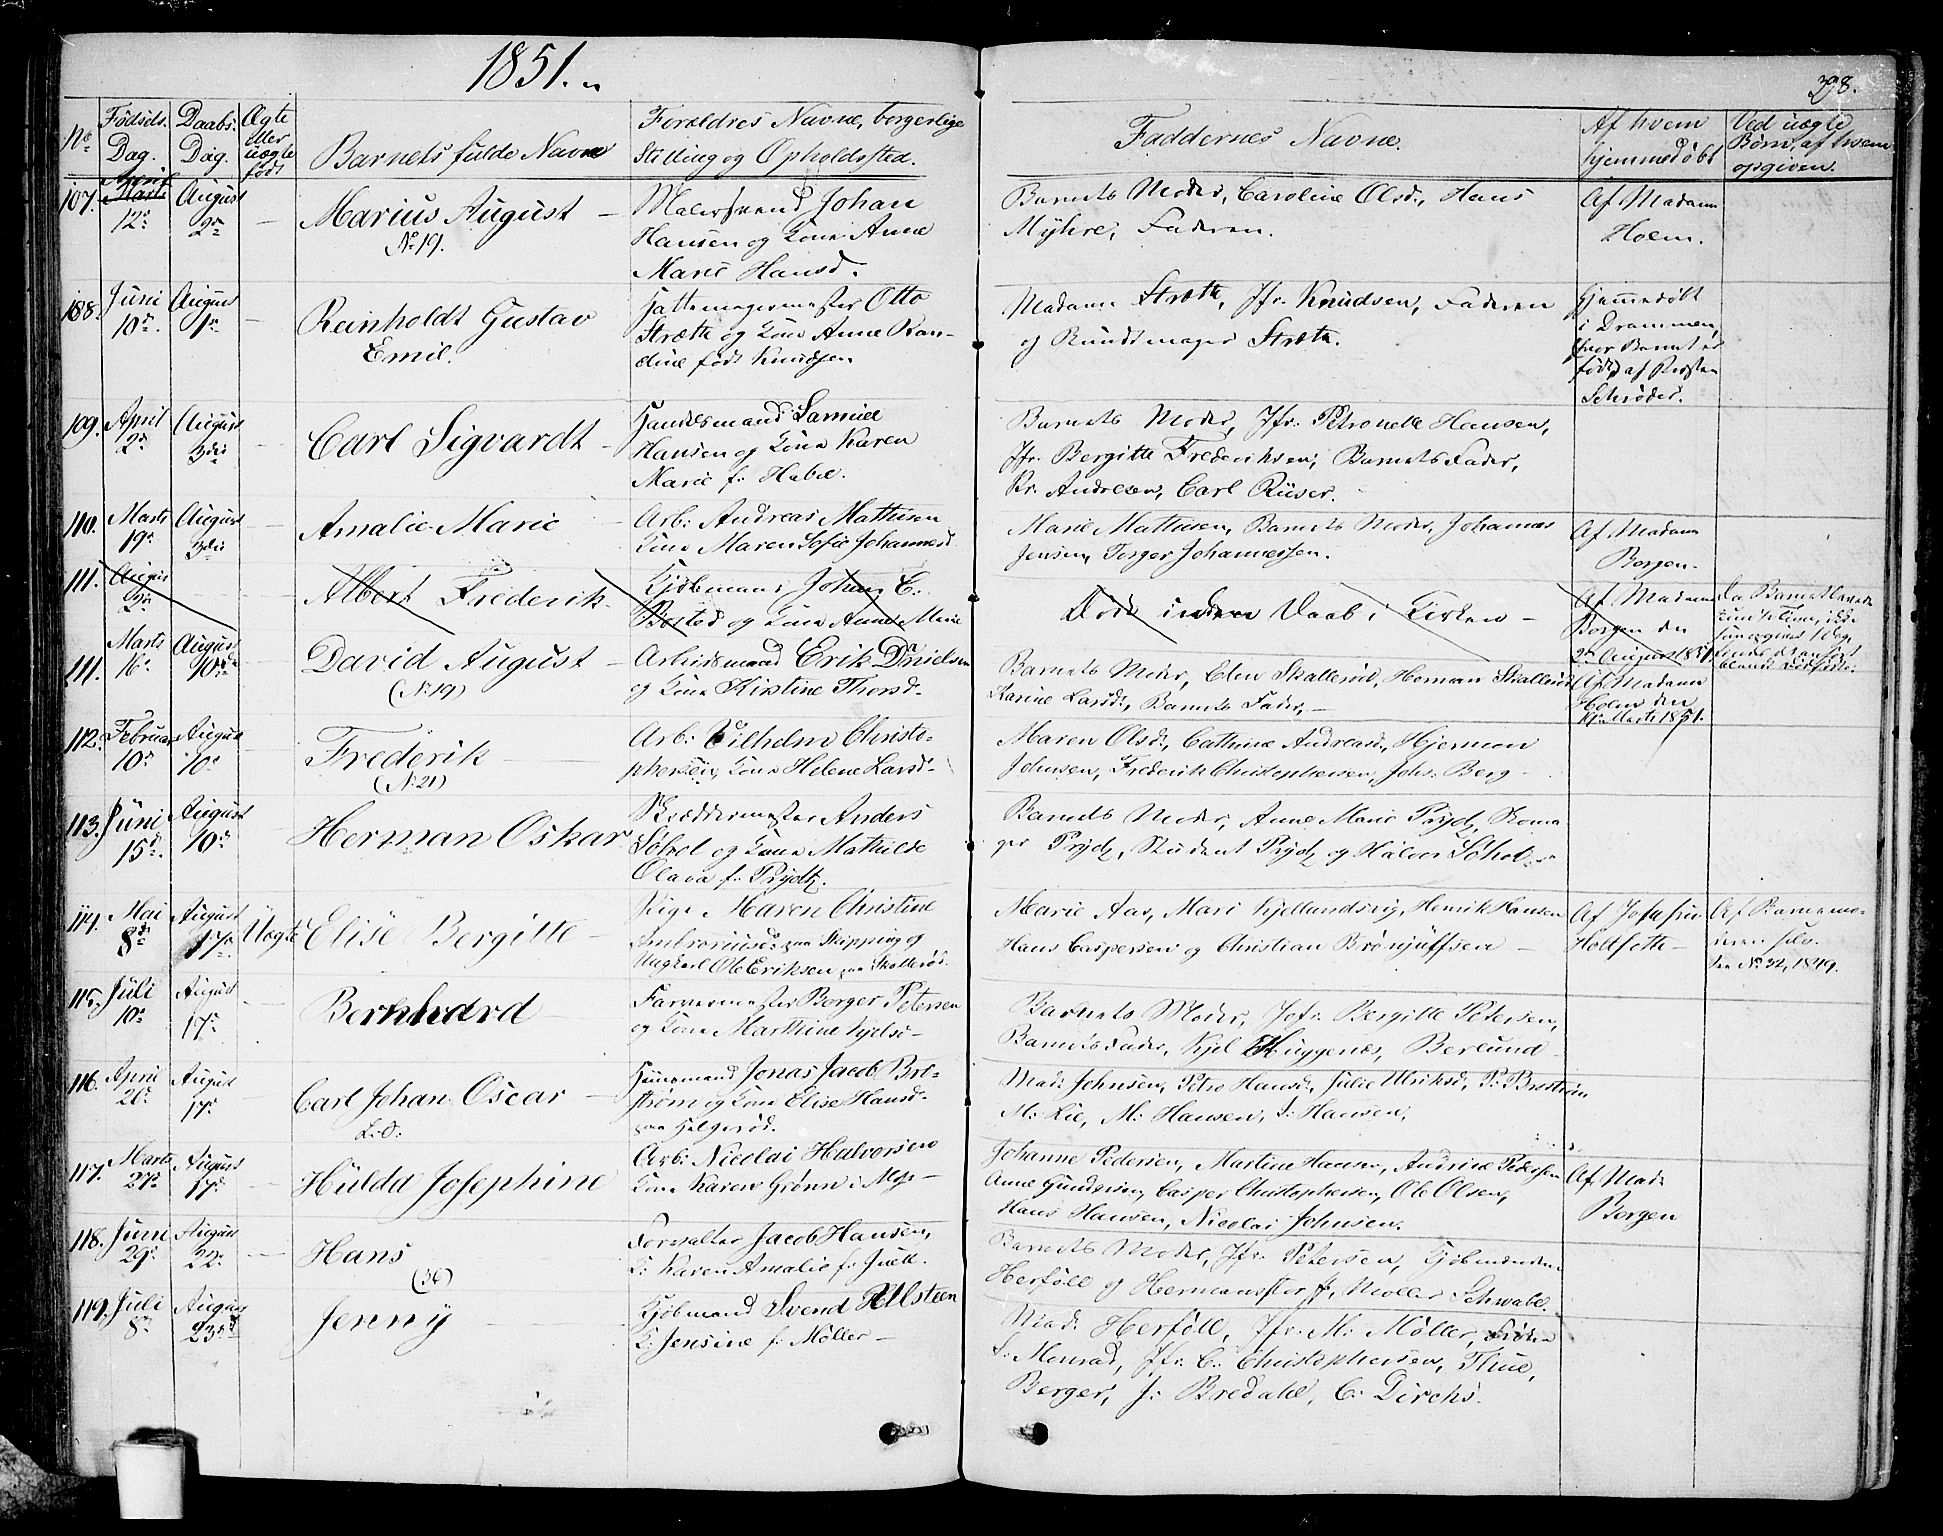 1851.
398.
No
Fødsels-
Dag.
Daabs-
Dag.
Ægte
eller
uægte
født
Barnets fulde Navne
Forældres Navne, borgerlige
Stilling og Opholdssted.
Faddernes Navne.
Af hvem
hjemmedøbt
Ved uægte
Børn, af hvem
opgiven.
107. April 12. August Marius August
No 19.
Malersvend Johan
Hansen og Kone Anne
Marie Hansd.
Barnets Moder, Caroline Olsd., Hans
Myhre, Faderen.
Af Madam
Holm.
108. Juni 10. August Reinholdt Gustav
Emil.
Hattemagermester Otto
Stræth og Kone Anne
født Knudsen
Madam Stræth, Jfr. Knudsen, Faderen
og Bundtmager Stræth.
Hjemmedøbt
i Drammen,
hvor Barnet er
født, af
Schrøder.
109. April 2. August Carl Sigvardt
Samuel
Hansen og Kone Karen
Marie f.
Barnets Moder, Jfr. Petronelle Hansen,
Jfr. Bergitte Frederiksen, Barnets Fader,
Kr. Andresen, Carl
110. Marts 19. August Amalie Marie
Arb: Andreas Mathisen
Kone Maren Sofie Johannesd
Marie Mathisen, Barnets Moder, Johannes
Jensen, Torger Johannessen.
Af Madam
Borgen.
111. August Albert Frederik.
Kjøbmand Johan C.
og Kone Anne Marie
Død inden Daab i Kirken
Af Madam
Borgen den
2 August 1851
111. Marts 16. August 10 David August
(No 19)
Arbeidsmand Erik Dnielsen
og Kone Kirstine Thorsd.
Barnets Moder, Elen Skallerød, Herman Skallerød
Karine Larsd., Barnets Fader,
Af Madam
Holm den
Marts 1851.
112. Februar 10. August 10. Frederik
(No 21)
Arb: Vilhelm Christo-
phersen, Kone Helene Larsd-
Maren Olsd., Cathrine Andreasd., Hjerman
Johnsen, Frederik Christophersen, Johs. Berg
113. Juni 15. August 10. Herman Oskar
Skræddermester Anders
Søhol og Kone Mathilde
Olava f. Prydtz.
Barnets Moder, Anne Marie Prydz,
Prydz, Student Prydz og Halvor Søhol
114. Mai 8. August 17. Uægte Elise Bergitte
Pige Maren Christine
Ambrosiusd. paa Skipping og
Ungkarl Ole Eriksen paa Skallerød.
Marie Aas, Mari Kjellandsvig, Henrik Hansen
Hans Caspersen og Christian
Af
Af Barnemo-
deren selv.
No 32, 1849.
115. Juli 10. August 17. Bernhard
Farvermester Borger Petersen
og Kone Marthine
Barnets Moder, Jofr. Bergitte Petersen,
Barnets Fader, Kjel Huggenæs, Berlund
116. April 21. August 17. Carl Johan Oscar
Huusmand Jonas Jacob Bre-
strøm og Kone Elise Hansd.
paa Helgerød.
Mad. Johnsen, Petra Hansd., Julie Ulriksd, P. Brestrøm
M: Lie, M: Hansen, S: Hansen,
117. Marts 27. August 17. Hulda Josephine
Arb: Nicolai Halvorsen
Kone Karen Grønn i Moss
Johanne Pedersen, Martine Hansen, Andrine Pedersen
Anne Gundersen, Casper Christophersen, Ole Olsen,
Hans Hansen, Nicolai Johnsen.
Af Mad.
Borgen
118. Juni 29. August 22. Hans
(36)
Forvalter Jacob Hansen,
K: Karen Amalie f. Juell.
Barnets Moder, Jfr. Petersen, Kjøbmændene
Herføll og Møller Schwabe.
119. Juli 8. August 23. Jenny
Kjøbmand Svend Ulsteen
K: Jensine f. Møller
Mad. Herføll, Jfr. M: Møller,
S: Monrad, Jfr. C: Christophersen, Thue,
Berger, J: Bredahl, C: Dirchs.